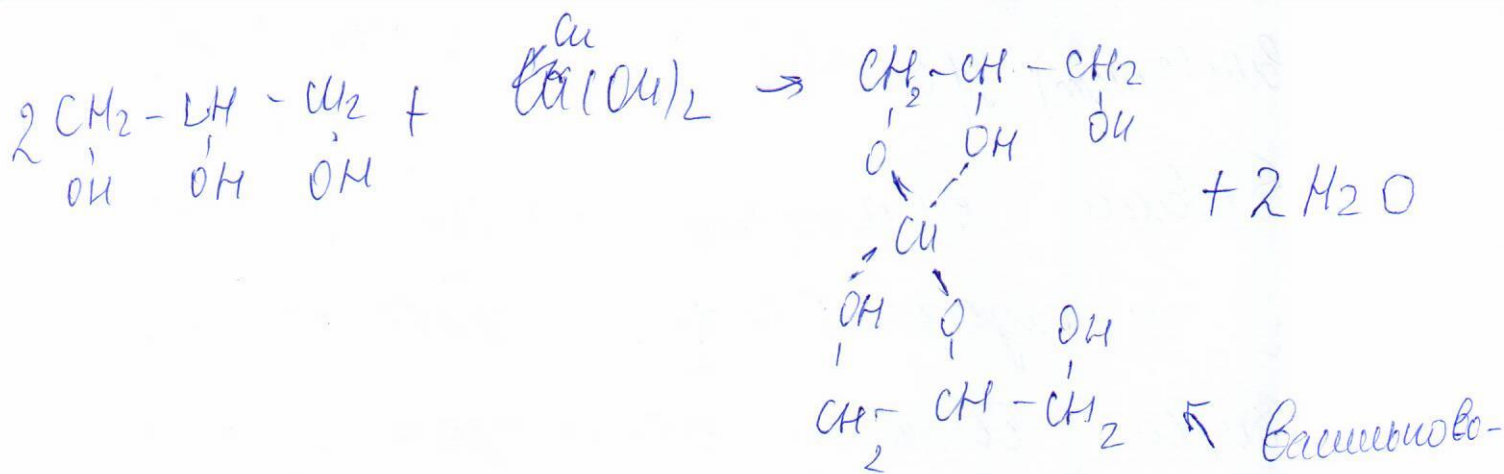 Cu
2 CH2 - CH - CH2 + (OH)2 → CH2 - CH - CH2
OH OH OH O OH OH
Cu + 2 H2O
OH O OH
CH2 - CH - CH2 ↖ Васильково-